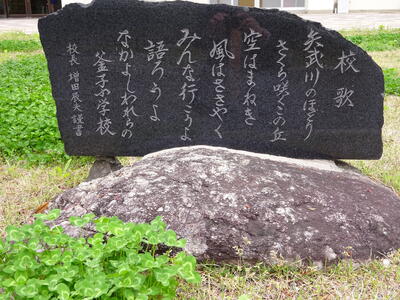 校歌
矢武川のほとり
さくら咲くこの丘
空はまねき
風はささやく
みんな行こうよ
語ろうよ
なかよしわれらの
釜子小学校
校長 増田辰夫 謹書